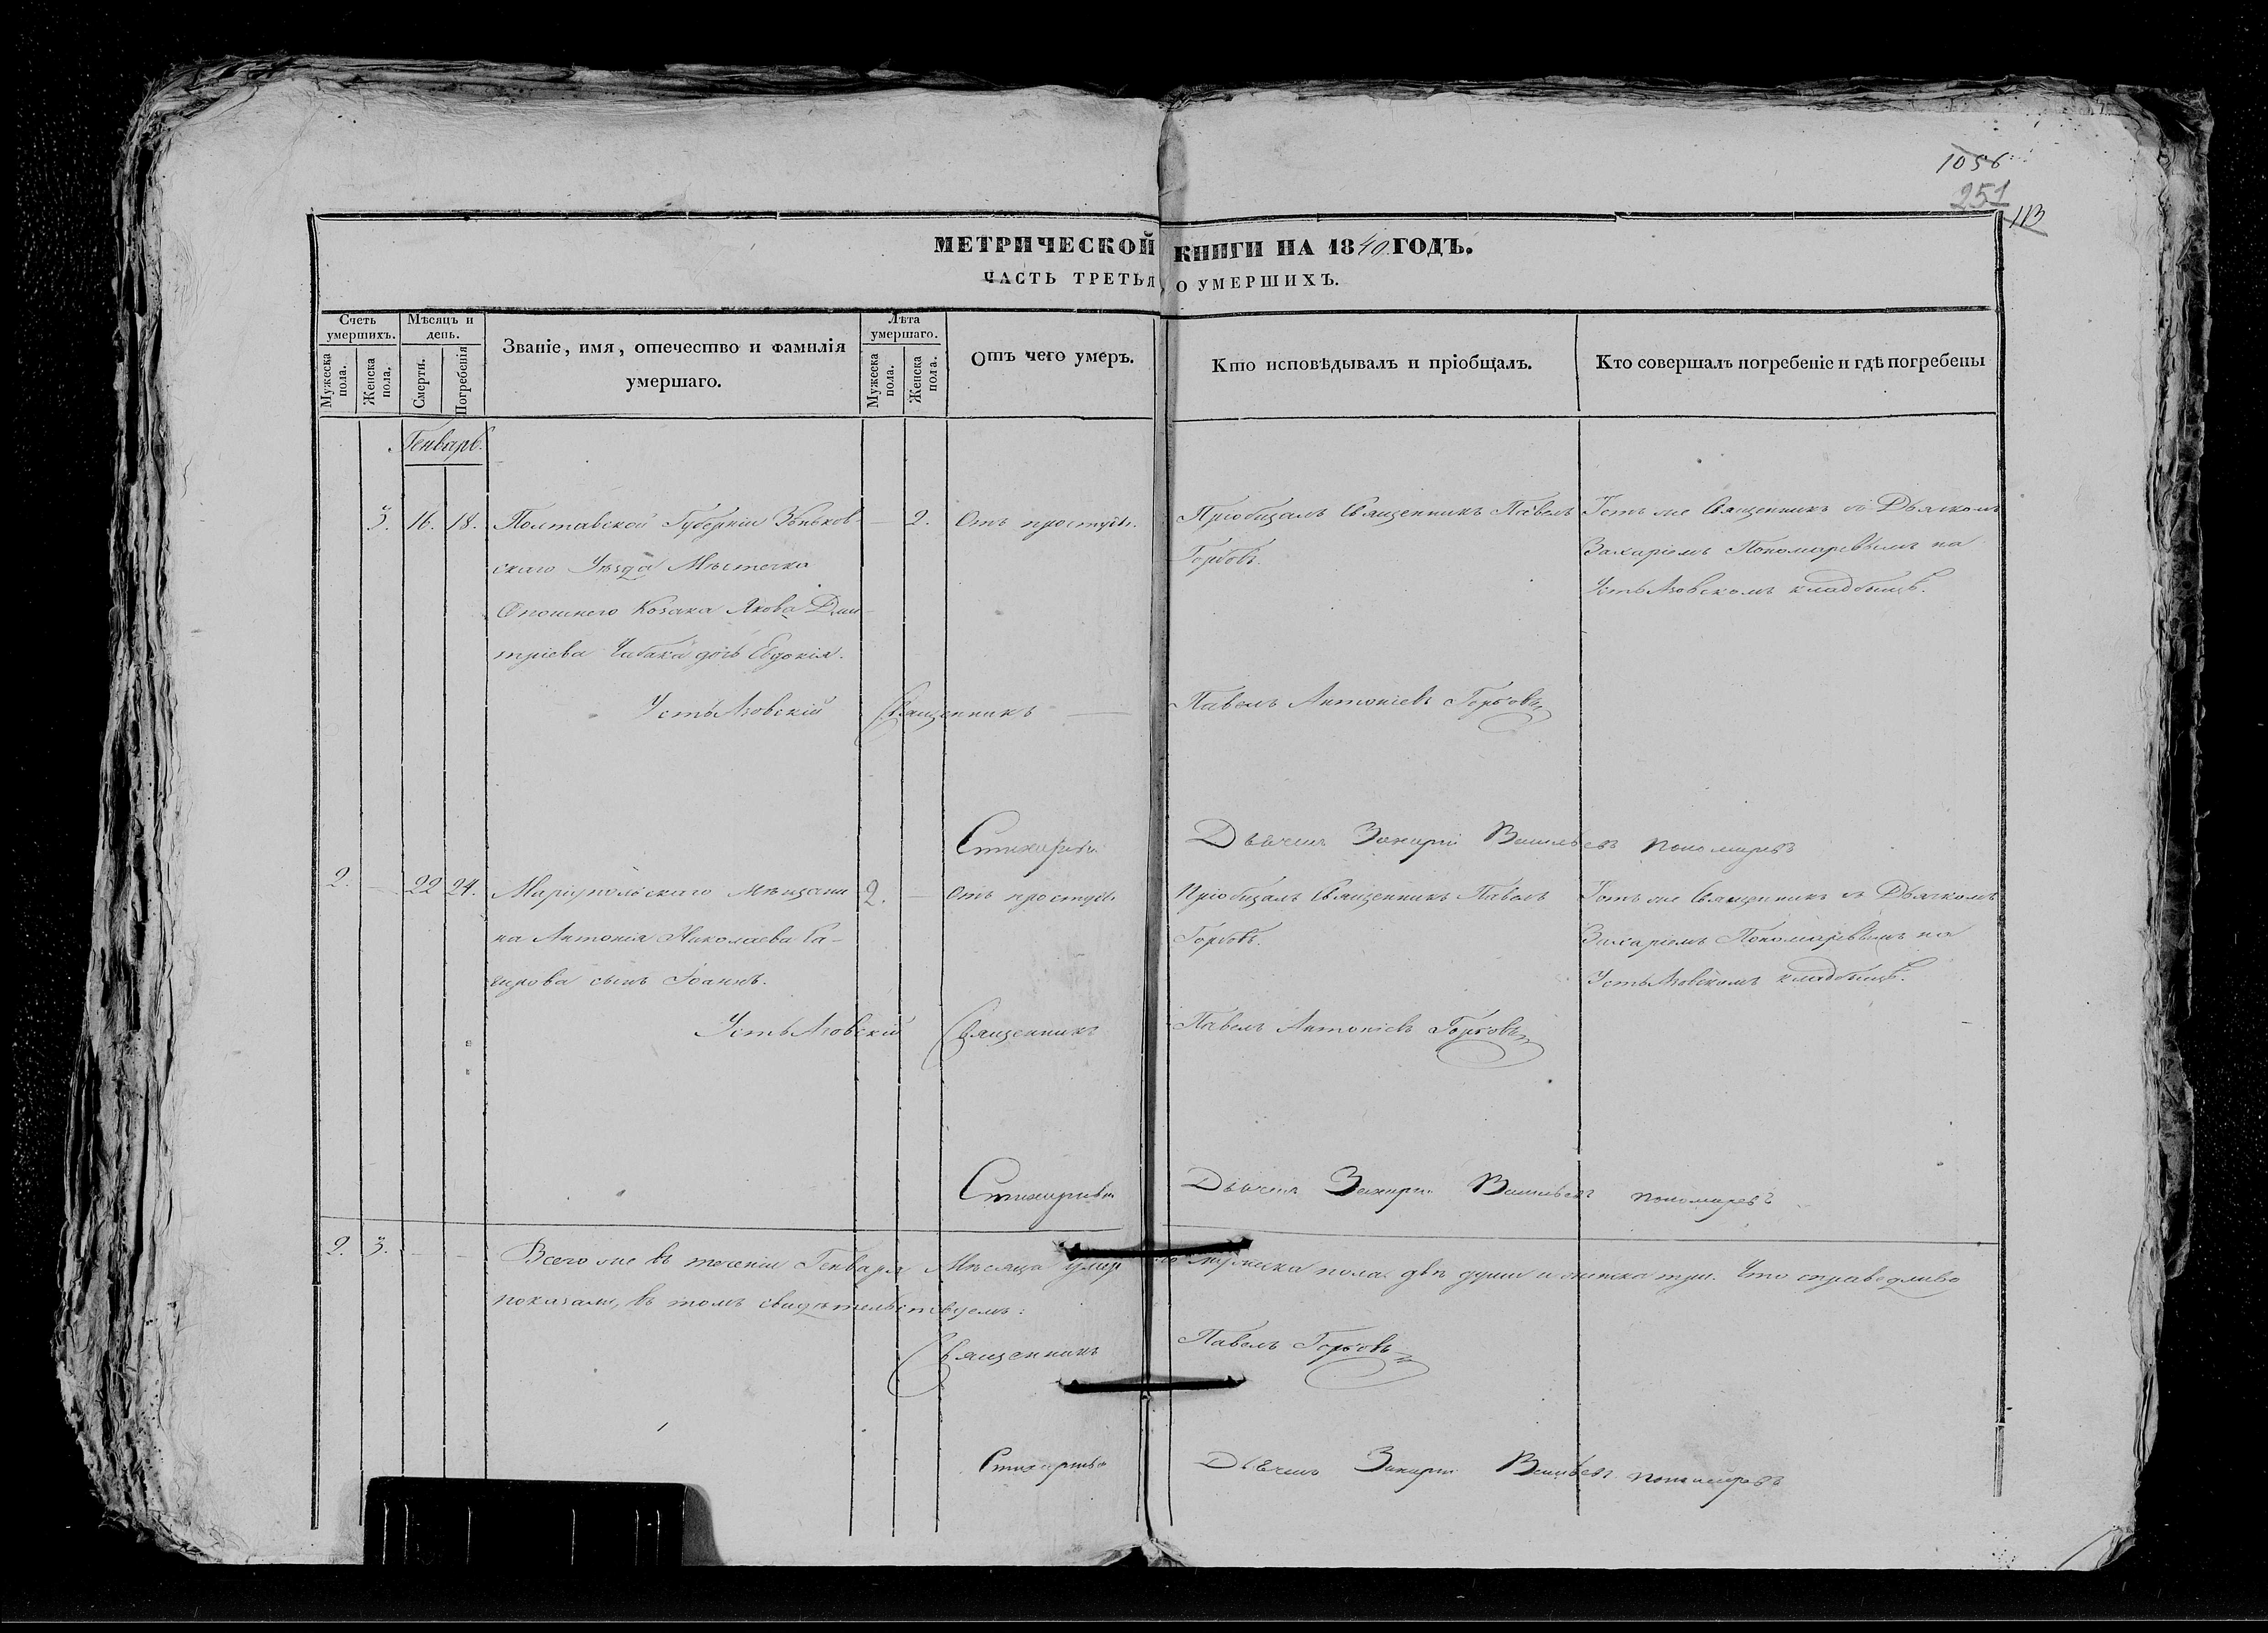 1056
251
113
МЕТРИЧЕСКОЙ КНИГИ НА 1840 ГОДЪ.
ЧАСТЬ ТРЕТЬЯ, О УМЕРШИХЪ.
Счетъ умершихъ.
Мужеска пола.
Женска пола.
Мѣсяцъ и день.
Смерти.
Погребенія
Званіе, имя, отечество и фамилія
умершаго.
Лѣта умершаго.
Мужеска пола.
Женска пола.
Отъ чего умеръ.
Кто исповѣдывалъ и пріобщалъ.
Кто совершалъ погребеніе и гдѣ погребены
Генварь.
3. 16. 18. Полтавской Губерніи Зѣньков- — 2. Отъ простуды. Пріобщалъ Священникъ Павелъ Тотъ же Священникъ съ Дьячкомъ
скаго Уѣзда Мѣстечка Горбовъ. Захаріемъ Пономаревымъ на
Опошнего Козака Якова Дми- Усть Азовскомъ кладбищѣ.
тріева Чабака дочь Евдокія.
Усть Азовскій Священникъ — Павелъ Антоніевъ Горбовъ
Стихарный Дьячекъ Захарій Васильевъ Пономаревъ
2. — 22 24. Маріупольскаго Мѣщани- 2. — Отъ простуды Пріобщалъ Священникъ Павелъ Тотъ же Священникъ съ Дьячкомъ
на Антонія Николаева Горбовъ. Захаріемъ Пономаревымъ на
сынъ Іоаннъ. Усть Азовскомъ кладбищѣ.
Усть Азовскій Священникъ Павелъ Антоніевъ Горбовъ
Стихарный Дьячекъ Захарій Васильевъ Пономаревъ
2. 3. — — Всего же въ теченіи Генваря Мѣсяца умерло мужеска пола двѣ души и женска три. Что справедливо
показали, въ томъ свидѣтельствуемъ:
Священникъ Павелъ Горбовъ
Стихарный Дьячекъ Захарій Васильевъ Пономаревъ